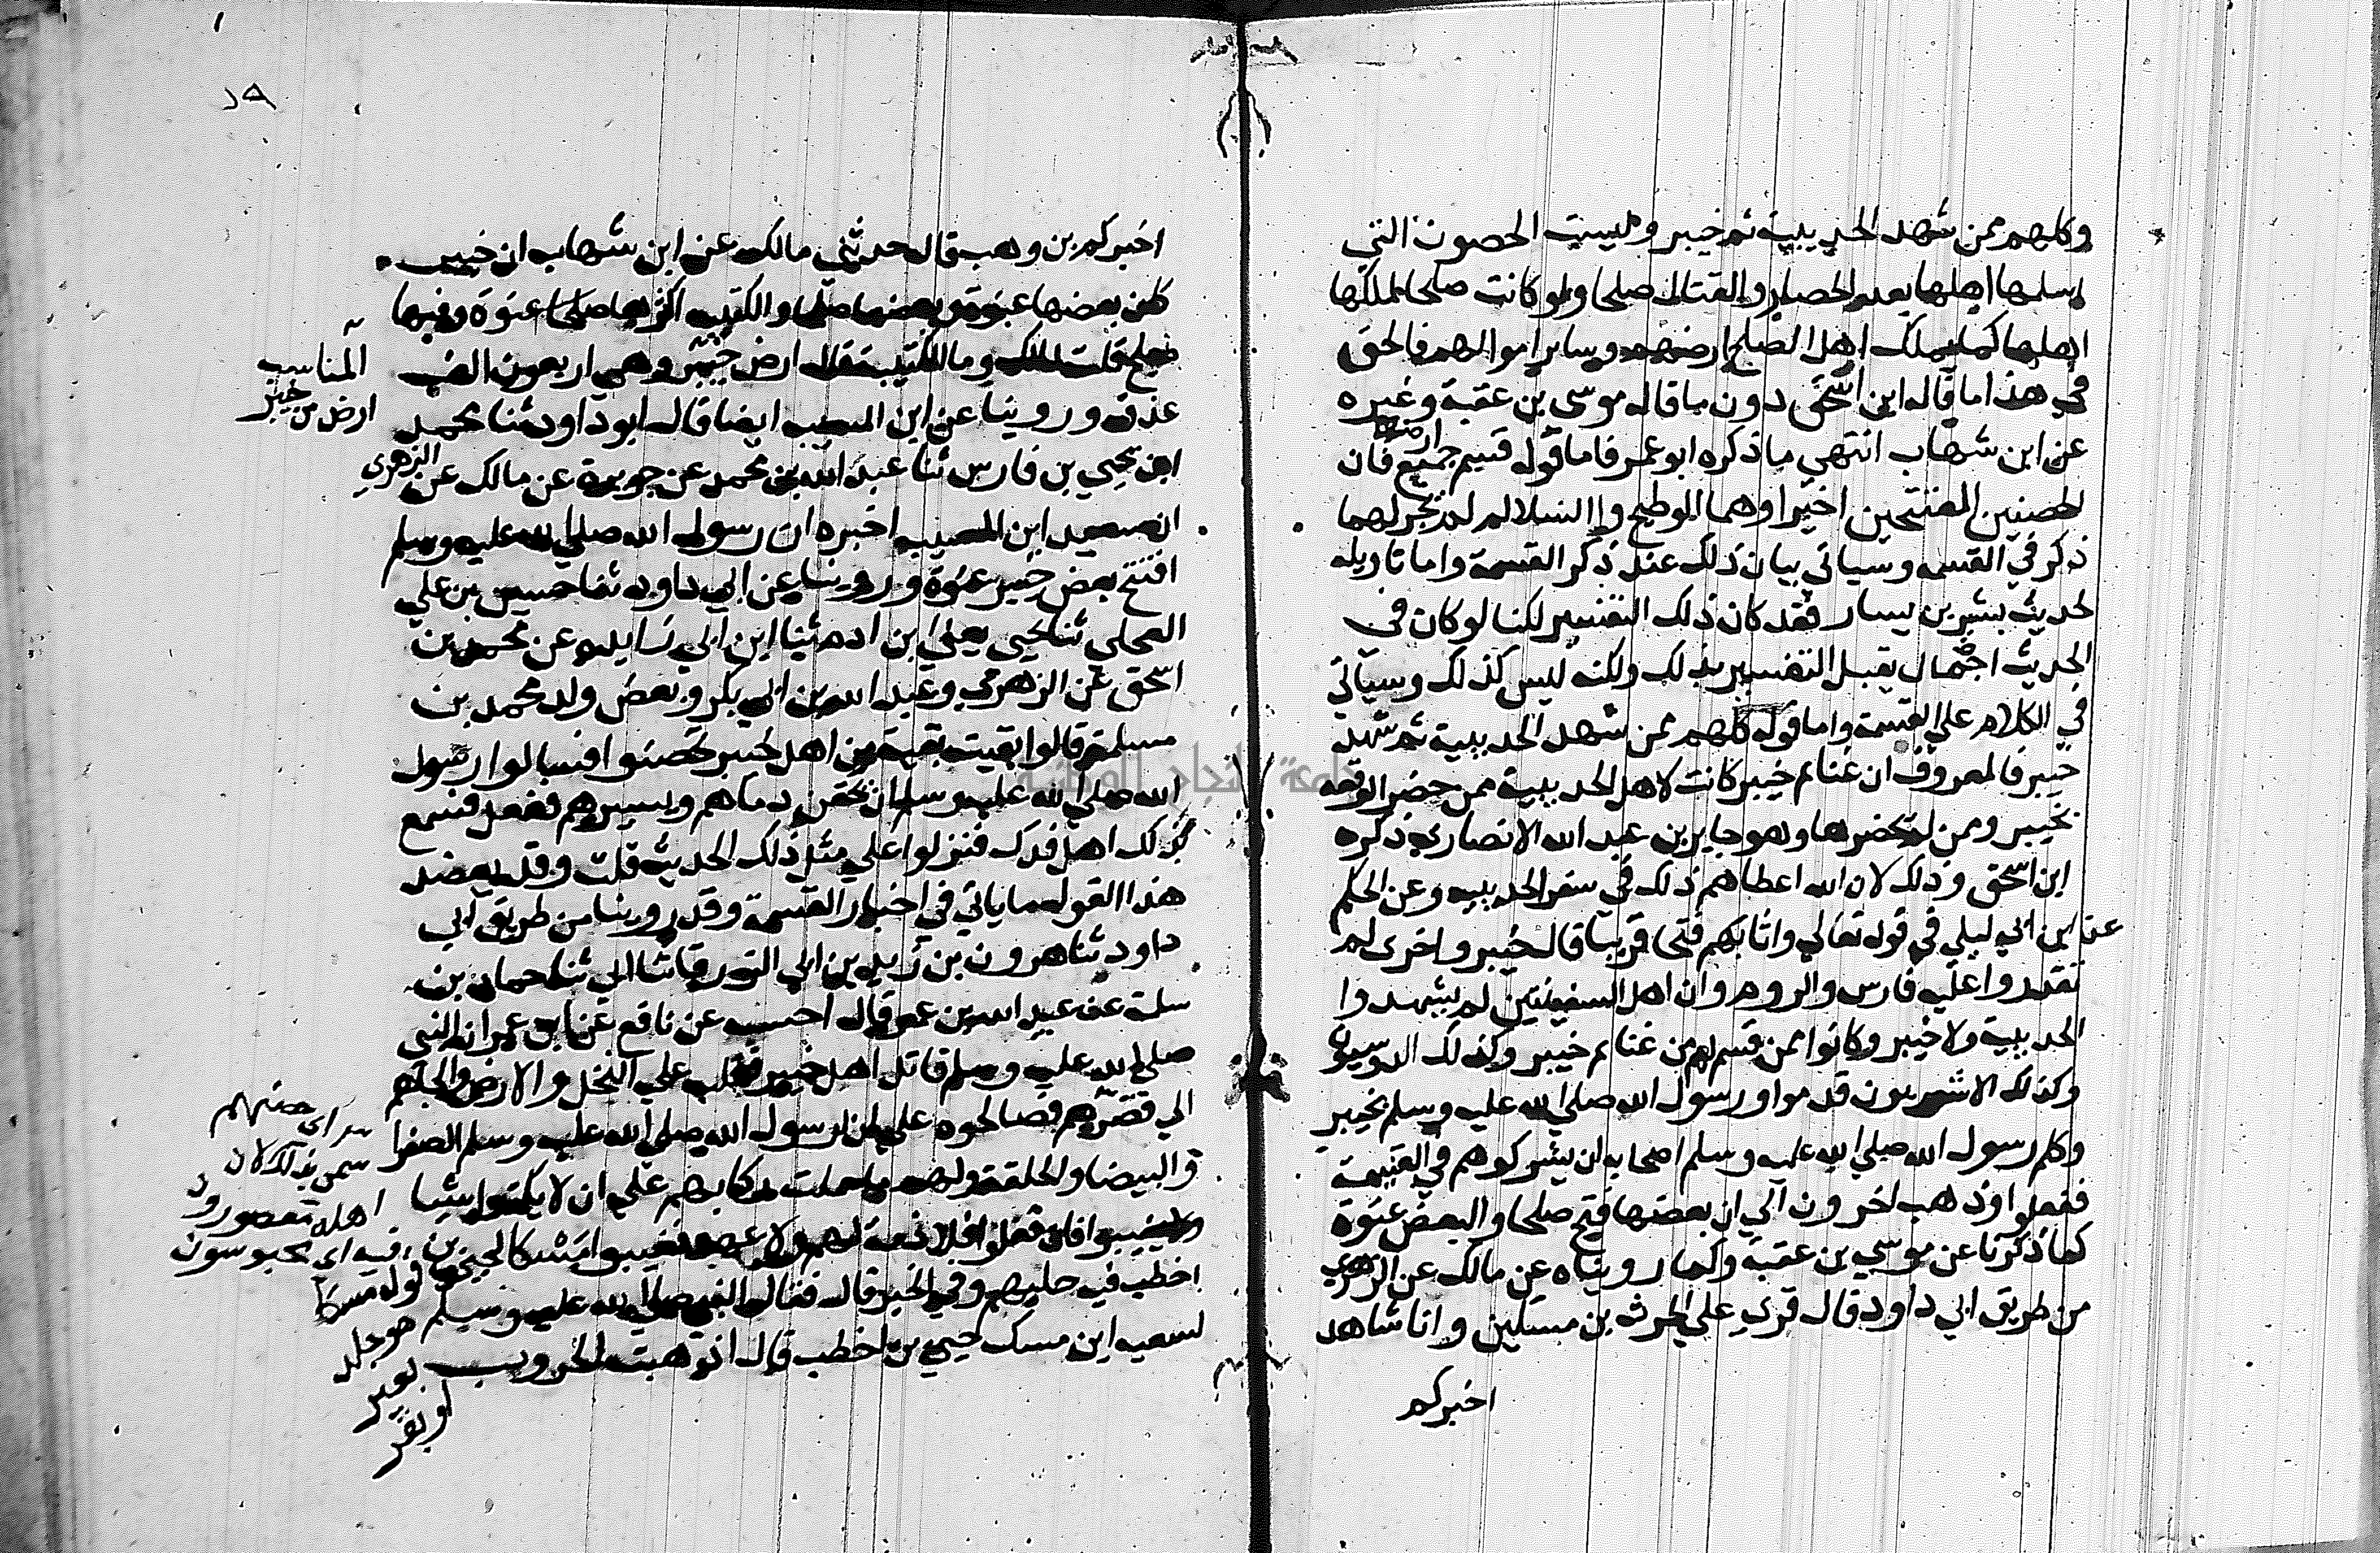 وكلهم ممن شهد الحديبية ثم خيبر وليست الحصون التي
اسلمها اهلها بعد الحصار والقتال صلحا ولو كانت صلحا لملكها
اهلها كما يملك اهل الصلح ارضهم وساير اموالهم فالحق
في هذا ما قاله ابن اسحق دون ما قاله موسى بن عقبة وغيره
عن ابن شهاب انتهي ما ذكره ابو عمر فاما قوله قسم جميع ارضها فان
الحصنين المفتتحين اخيرا وهما الوطيح والسلالم لم يجر لهما
ذكر في القسمه وسياتي بيان ذلك عند ذكر القسمة واما تاويله
لحديث بشير بن يسار فقد كان ذلك التفسير لكنا لو كان في
الحديث اجمال يقبل التفسير بذلك ولكنه ليس كذلك وسياتي
في الكلام علي القسمة واما قوله كلهم ممن شهد الحديبية ثم شهد
خيبر فالمعروف ان غنايم خيبر كانت لاهل الحديبية ممن حضر الوقعه
بخيبر وممن لم يحضرها وهو جابر بن عبد الله الانصاري ذكره
ابن اسحق وذلك لان الله اعطاهم ذلك في سفر الحديبيه وعن الحكم
عن ابن ابي ليلي في قوله تعالي واثابهم فتحا قريبا قال خيبر واخرى لم
تقدروا عليه فارس والروم وان اهل السفينتين لم يشهدوا
الحديبية ولا خيبر وكانوا ممن قسم لهم من غنايم خيبر وكذلك الدوسيون
وكذلك الاشعريون قدموا ورسول الله صلي الله عليه وسلم بخيبر
وكلم رسول الله صلي الله عليه وسلم اصحابه ان يشركوهم في الغنيمة
ففعلوا وذهب اخرون الي ان بعضها فتح صلحا والبعض عنوة
كما ذكرنا عن موسي بن عقبة وكما رويناه عن مالك عن الزهري
من طريق ابي داود قال قري علي الحرث بن مسكين وانا شاهد
اخبركم
اخبركم بن وهب قال حدثني مالك عن ابن شهاب ان خيبر
كان بعضها عنوة وبعضها صلحا والكتيبة اكثرها عنوة وفيها
صلح قلت لمالك وما الكتيبة قال ارض خيبر وهي اربعون الف
المناسب
ارض من خيبر
عذق وروينا عن ابن المسيب ايضا قال ابو داود ثنا محمد
ابن يحيي بن فارس ثنا عبد الله بن محمد عن جويرة عن مالك عن الزهري
ان سعيد ابن المسيب اخبره ان رسول الله صلي الله عليه وسلم
افتتح بعض خيبر عنوة وروينا عن ابي داود ثنا حسين بن علي
العجلي ثنا يحيي يعني ابن ادم ثنا ابن ابي زايده عن محمد بن
اسحق عن الزهري وعبد الله بن ابي بكر وبعض ولد محمد بن
مسلمة قالوا بقيت بقية من اهل خيبر تحصنوا فسالوا رسول
الله صلي الله عليه وسلم ان يحقن دماهم ويسيرهم ففعل فسمع
بذلك اهل فدك فنزلوا علي مثل ذلك الحديث قلت وقد يعضد
هذا القول ما ياتي في اخبار القسمة وقد روينا من طريق ابي
داود ثنا هرون بن زيد بن ابي الزرقا ثنا ابي ثنا حماد بن
سلمة عن عبيد الله بن عمر قال احسبه عن نافع عن ابن عمر ان النبي
صلي الله عليه وسلم قاتل اهل خيبر فغلب علي النخل والارض والجاهم
الي قصرهم فصالحوه علي ان لرسول الله صلي الله عليه وسلم الصفرا
والبيضا والحلقة ولهم ما حملت ركابهم علي ان لا يكتموا شيا
ولا يغيبوا فان فعلوا فلا ذمة لهم ولا عهد فغيبوا مسكا لحيي بن
اخطب فيه حليهم وفي الخبر قال فقال النبي صلي الله عليه وسلم
لسعيه اين مسك حيي بن اخطب قال اذهبته الحروب
اي حصنهم
سمي بذلك لان
اهله مقصورون
فيه اي محبوسون
قوله مسكا
هو جلد
بعير
او بقر